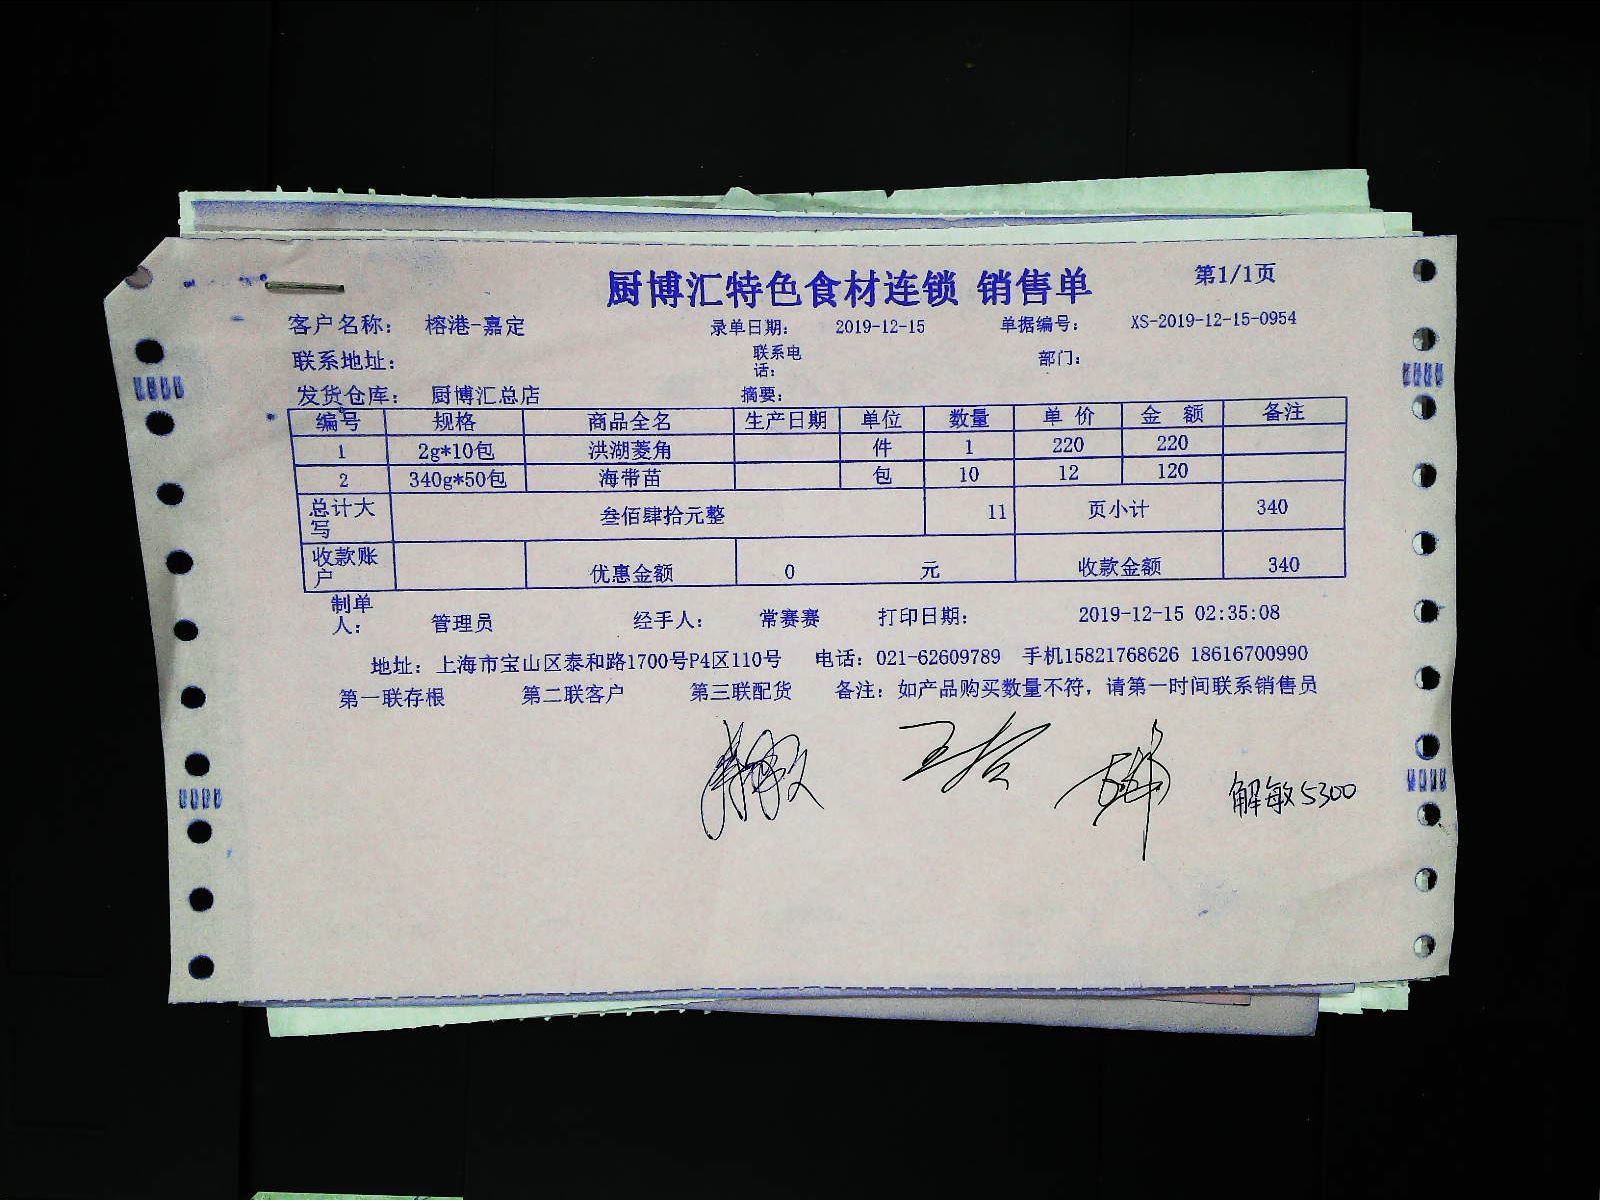 厨博汇特色食材连锁 销售单 第1/1页
客户名称: 榕港-嘉定 录单日期: 2019-12-15 单据编号: XS-2019-12-15-0954
联系地址: 联系电话: 部门:
发货仓库: 厨博汇总店 摘要:
编号 规格 商品全名 生产日期 单位 数量 单 价 金 额 备注
1 2g*10包 洪湖菱角 件 1 220 220
2 340g*50包 海带苗 包 10 12 120
总计大写 叁佰肆拾元整 11 页小计 340
收款账户 优惠金额 0 元 收款金额 340
制单人: 管理员 经手人: 常赛赛 打印日期: 2019-12-15 02:35:08
地址: 上海市宝山区泰和路1700号P4区110号 电话: 021-62609789 手机15821768626 18616700990
第一联存根 第二联客户 第三联配货 备注: 如产品购买数量不符, 请第一时间联系销售员
解敏5300